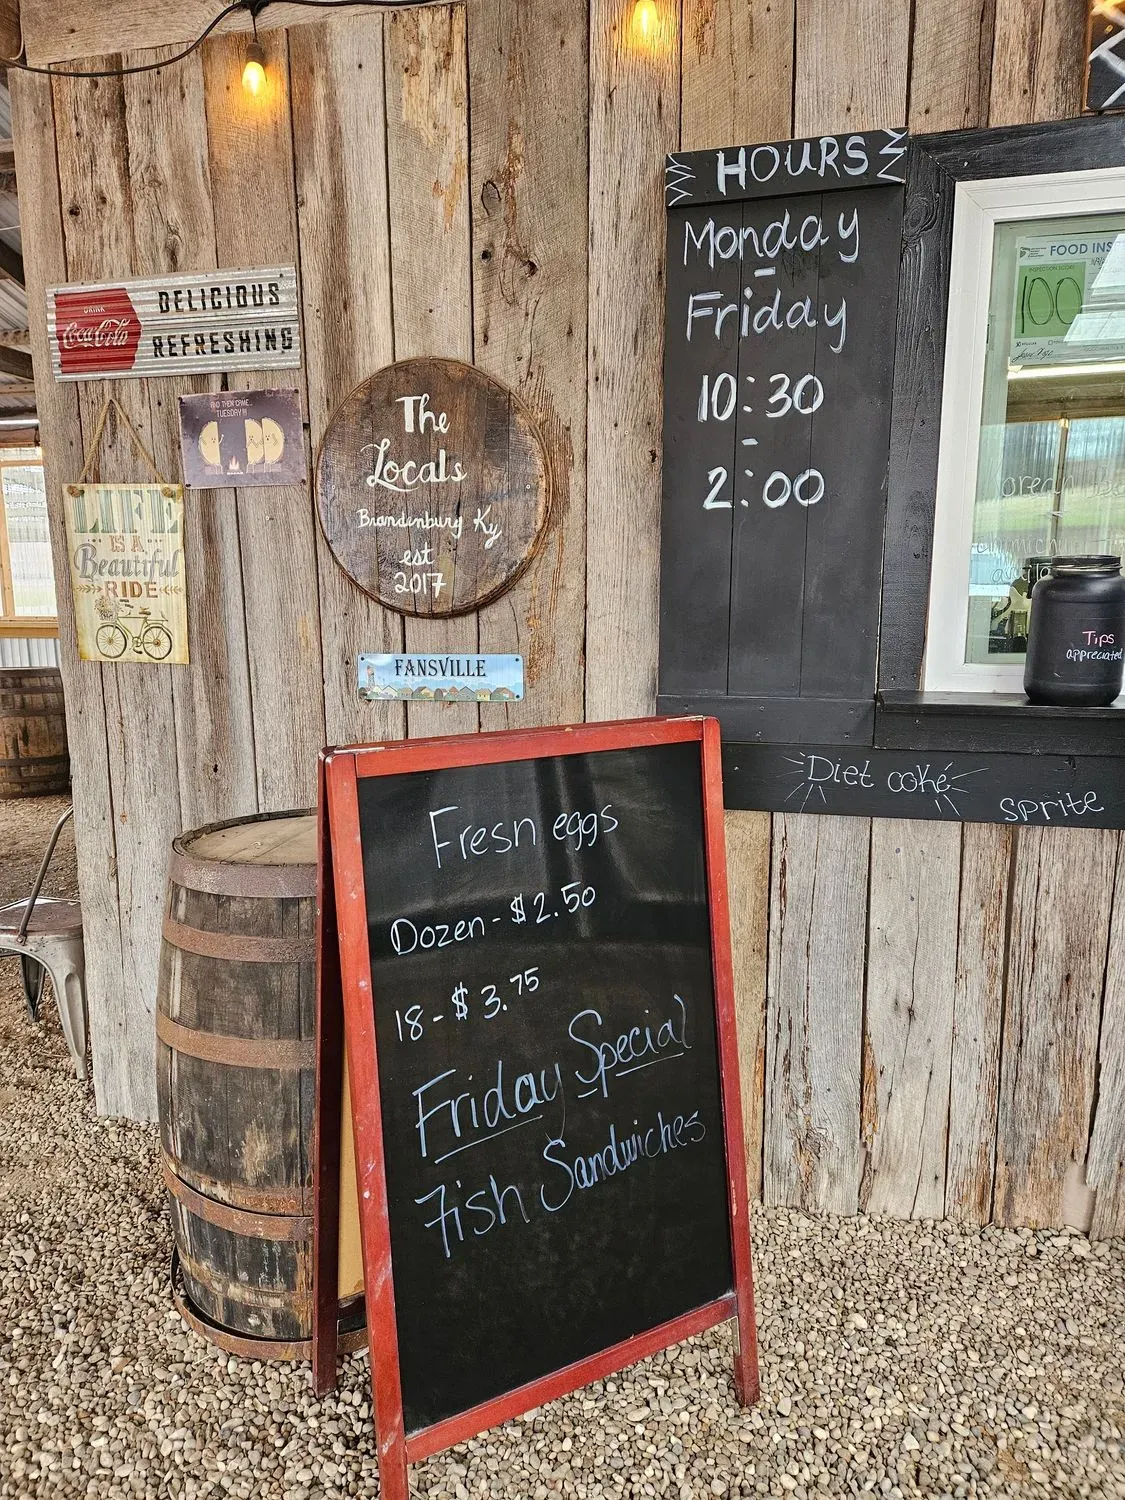 HOURS
Monday
-
Friday
10:30
-
2:00
FOOD INS
INSPECTION SCORE
100
DRINK
Coca-Cola
DELICIOUS
REFRESHING
AND THEN CAME...
TUESDAY!!!
LIFE
IS A
Beautiful
RIDE
The
Locals
Brandenburg Ky
est
2017
FANSVILLE
Tips
appreciated
Diet coke
sprite
Fresh eggs
Dozen - $2.50
18 - $3.75
Friday Special
Fish Sandwiches